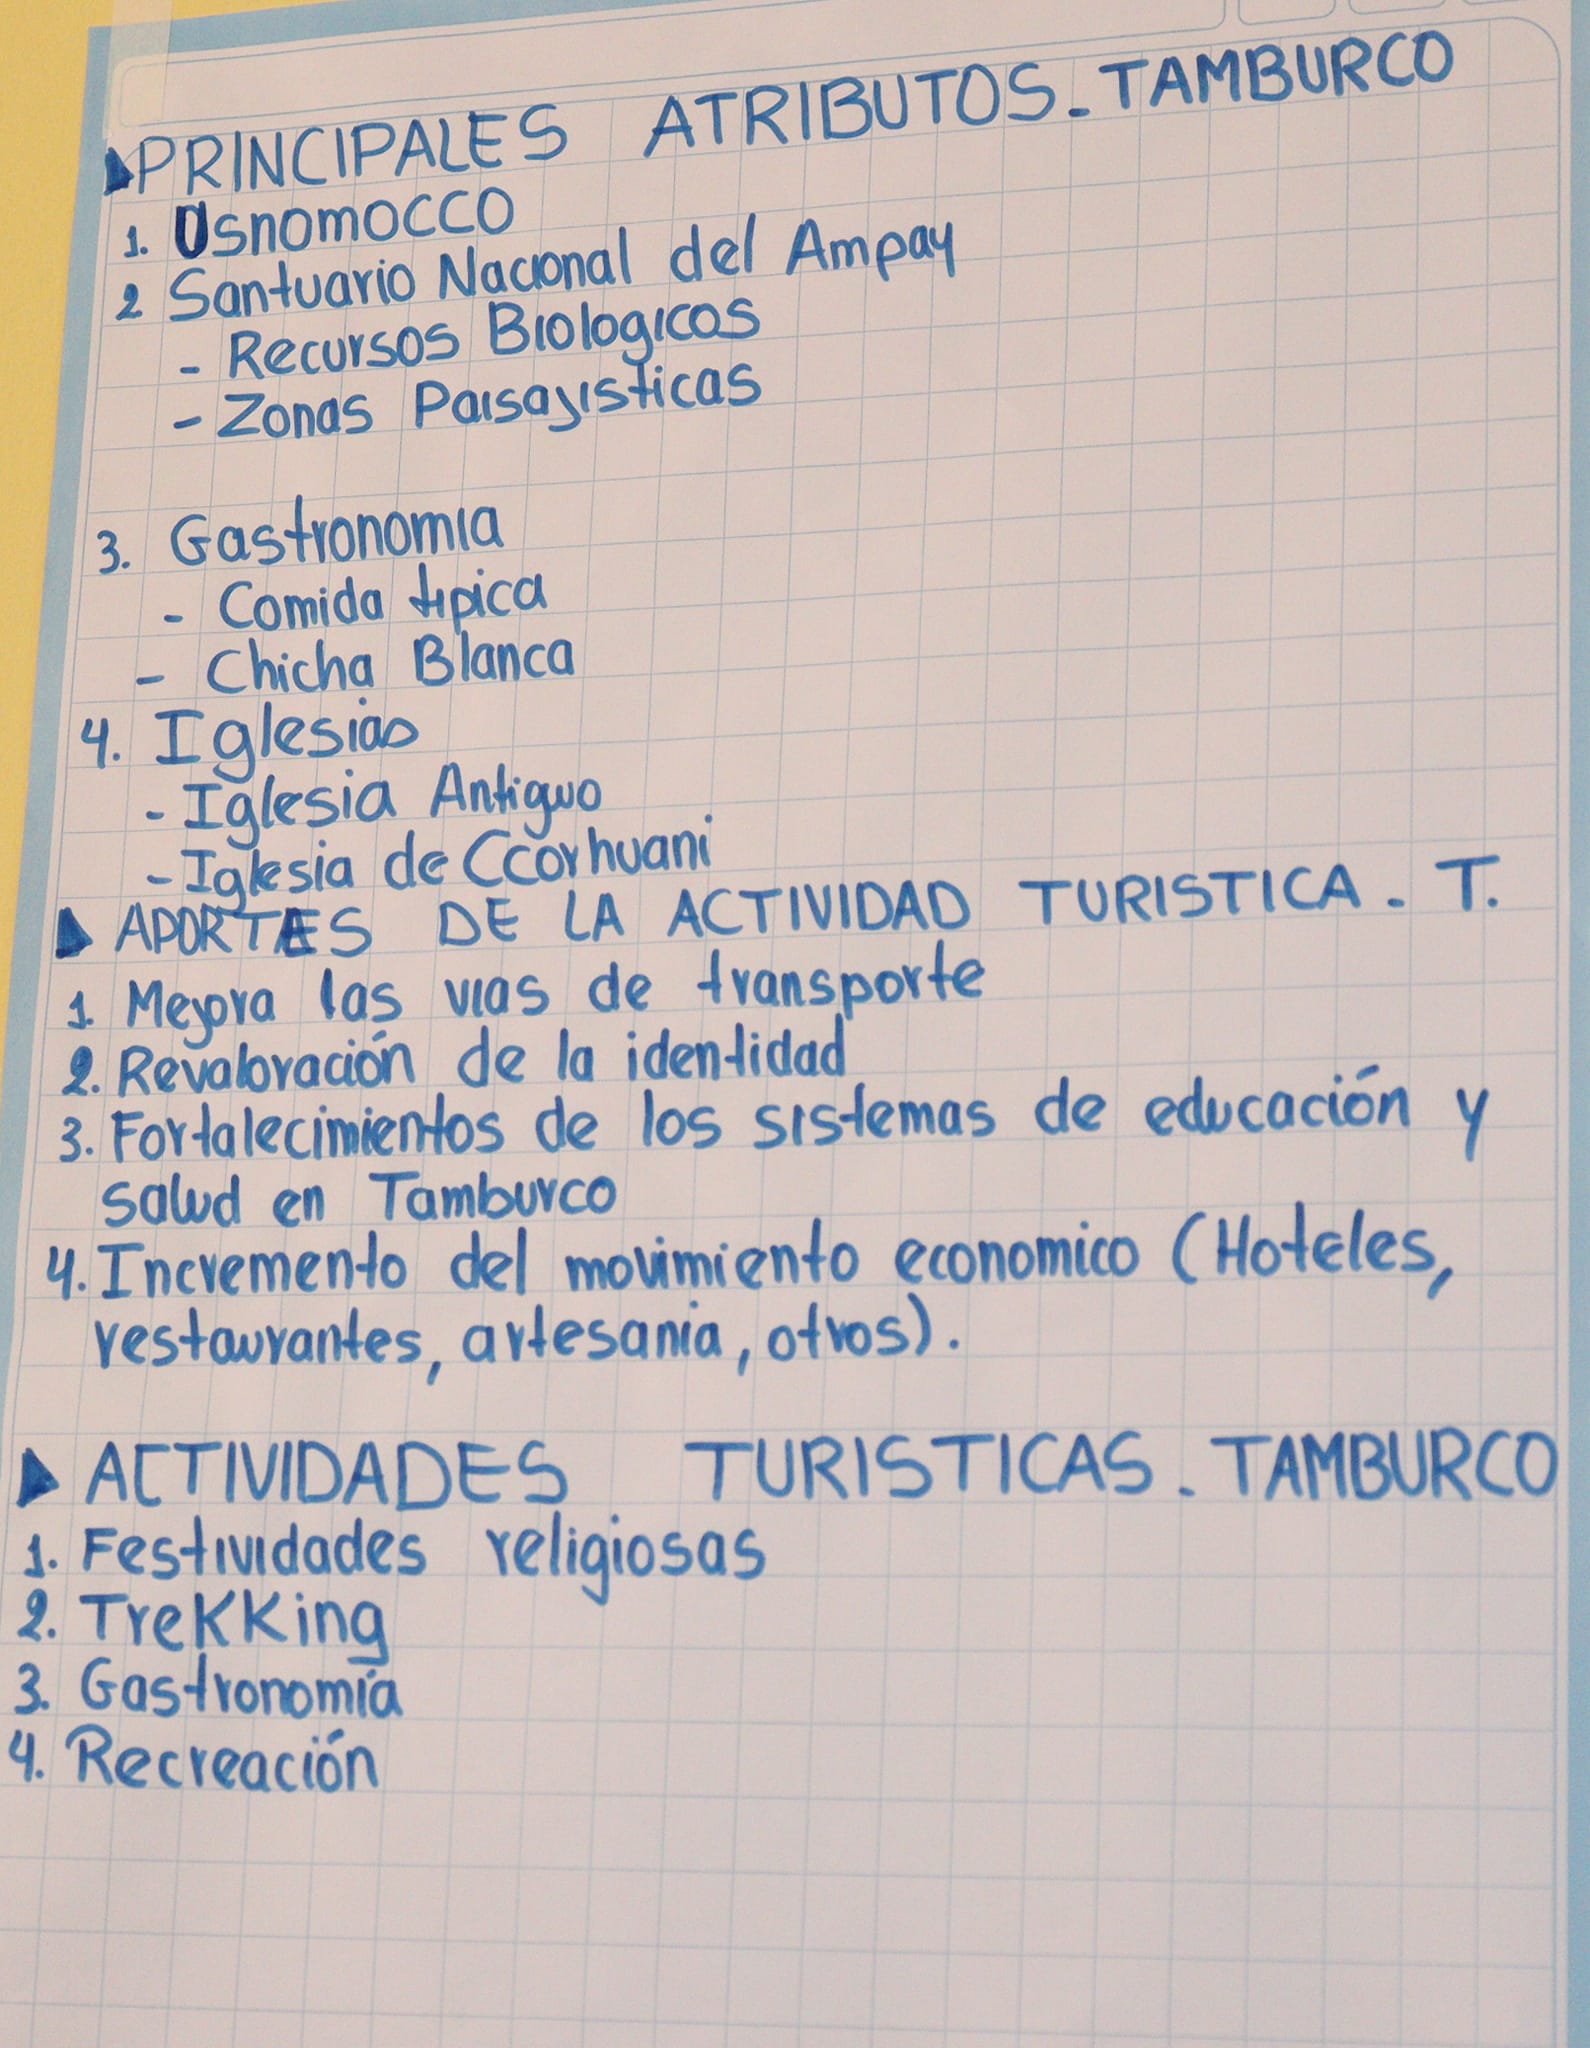 PRINCIPALES ATRIBUTOS - TAMBURCO
1. Usnomocco
2 Santuario Nacional del Ampay
- Recursos Biologicos
- Zonas Paisajisticas
3. Gastronomia
- Comida tipica
- Chicha Blanca
4. Iglesias
- Iglesia Antiguo
- Iglesia de Ccorhuani
APORTES DE LA ACTIVIDAD TURISTICA - T.
1. Mejora las vias de transporte
2. Revaloración de la identidad
3. Fortalecimientos de los sistemas de educación y
salud en Tamburco
4. Incremento del movimiento economico (Hoteles,
restaurantes, artesania, otros).
ACTIVIDADES TURISTICAS - TAMBURCO
1. Festividades religiosas
2. Trekking
3. Gastronomía
4. Recreación